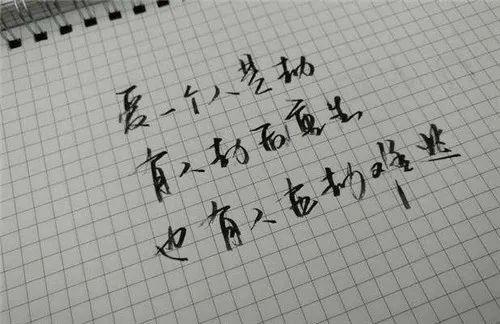 爱一个人是劫
有人劫后重生
也有人在劫难逃